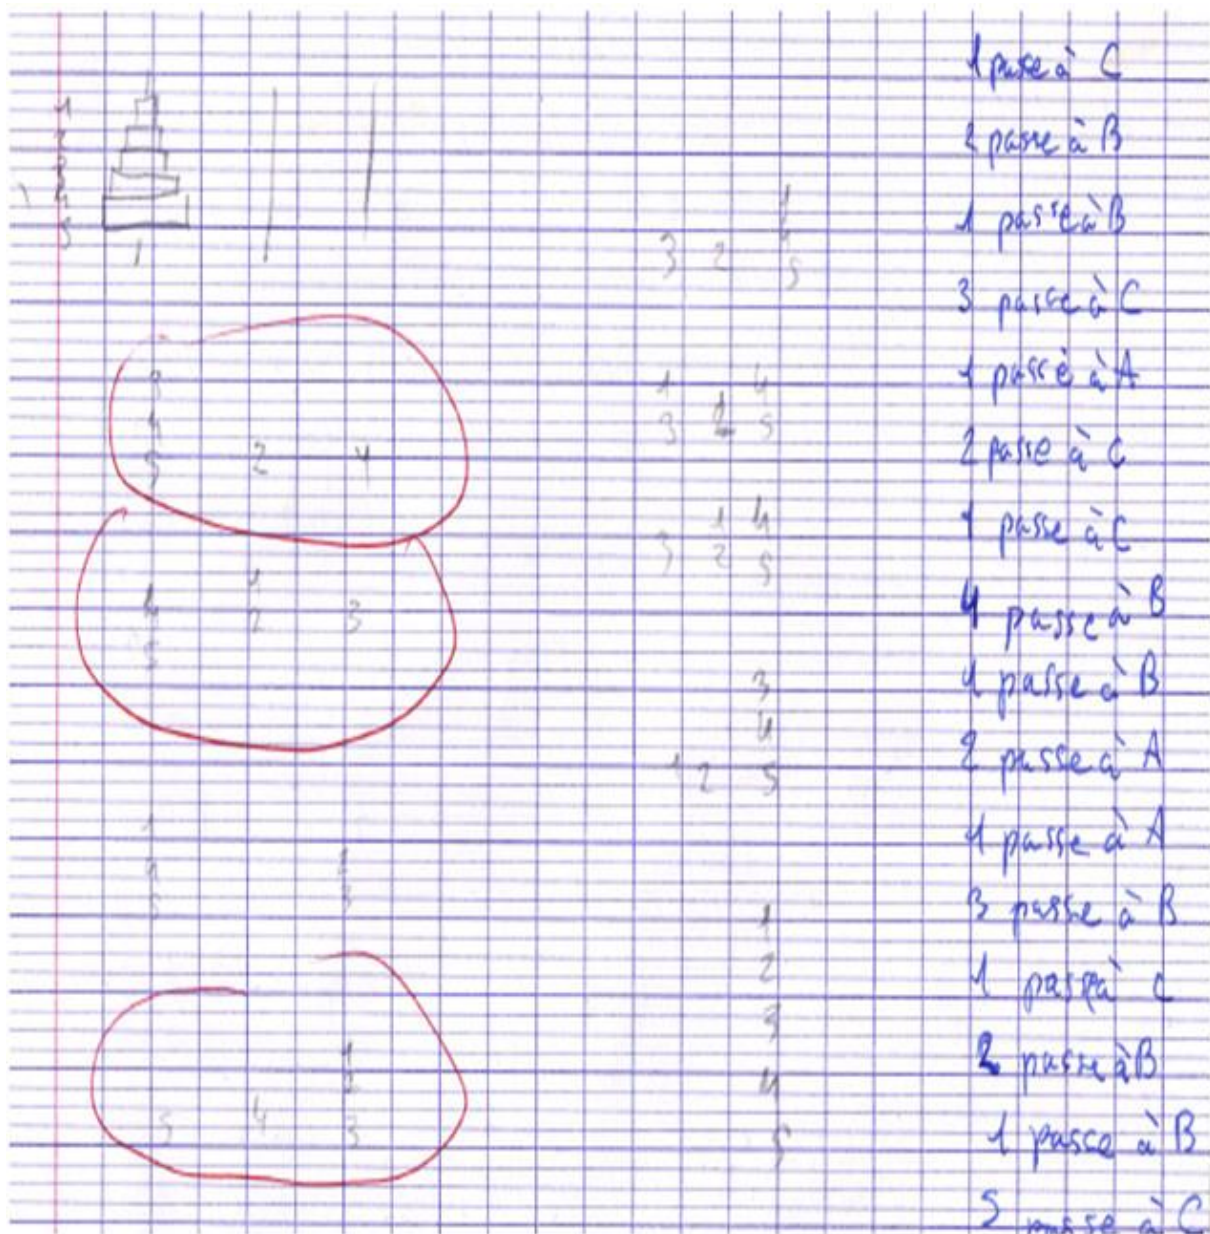 1
2
3
4
5
1
3
4
5 2
1
4 2 3
5
4
5 3
1
2
5 4 3
3 2 5
1 4
3 2 5
1 4
3 2 5
3
4
1 2 5
1
2
3
4
5
1 passe à C
2 passe à B
1 passe à B
3 passe à C
1 passe à A
2 passe à C
1 passe à C
4 passe à B
1 passe à B
2 passe à A
1 passe à A
3 passe à B
1 passe à c
2 passe à B
1 passe à B
5 passe à C